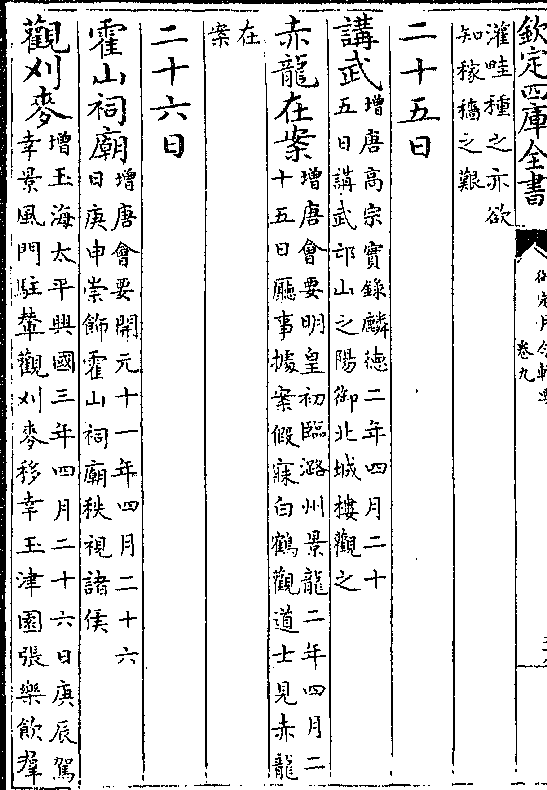 欽定四庫全書
卷九
灌畦種之亦欲
知稼穡之艱
二十五日
講武增唐髙宗實錄麟德二年四月二十
五日講武邙山之陽御北城樓觀之
赤龍在案增唐會要明皇初臨潞州景龍二年四月二
十五日廳事據案假寐白鶴觀道士見赤龍
在
案
二十六日
霍山祠廟增唐會要開元十一年四月二十六
日庚申崇飾霍山祠廟秩視諸侯
觀刈麥增玉海太平興國三年四月二十六日庚辰駕
幸景風門駐輦觀刈麥移幸玉津園張樂飲羣